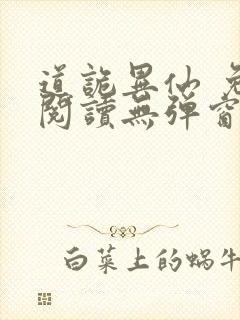 道詭異仙 免
閱讀無彈窗
白菜上的蝸牛